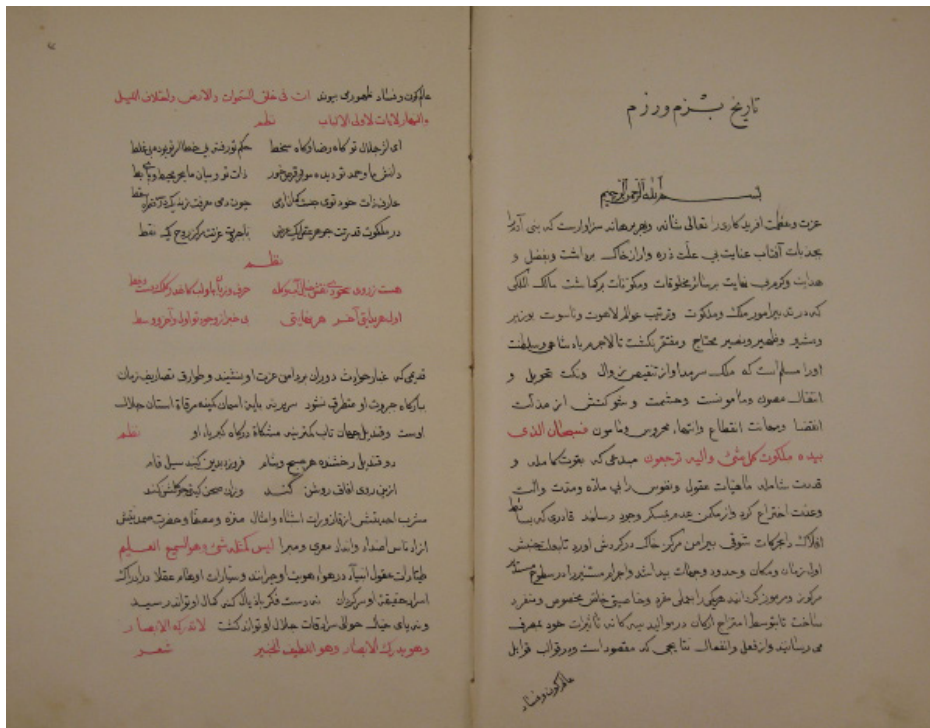 تاریخ بزم و رزم
بسم الله الرحمن الرحیم
عزت و عظمت افریدکاری را تعالی شانه و بهر برهانه سزاوارست که بنی آدم را
بجذبات آفتاب عنایت بی علت ذره وار از خاک برداشت و بفضل و
هدایت و کرم بی غایت بر سائر مخلوقات و مکونات برکماشت مالک الملکی
که در تدبیر امور ملک و ملکوت و ترتیب عوالم لاهوت و ناسوت بوزیر
و مشیر و ظهیر و نصیر محتاج و مفتقر نکشت تا لاجرم پادشاهی و سلطنت
اورا مسلم است که ملک سرمد او از تنقیص زوال و نکبت تحویل و
انتقال مصون و مأمونست و حشمت و شوکتش از مذلت
انقضا و مهانت انقطاع و انتها محروس و مأمون فسبحان الذی
بیده ملکوت کل شئ والیه ترجعون مبدعی که بقوت کامله و
قدرت شامله ماهیات عقول و نفوس را بی ماده و مدت و آلت
و عدت اختراع کرد و از مکمن عدم بمعسکر وجود رسانید قادری که
افلاک را بحرکات شوقی پیرامن مرکز خاک در کردش اورد تا بجنبش
اول زمان و مکان و حدود و جهات پیدا شد و اجرام مستنیر را در سطوح
مرکوز و مرموز کردانید هر یکی را بعملی مفرد و خاصیتی خالص مخصوص و منفرد
ساخت تا بتوسط امتزاج ارکان در موالید سه کانه تأثیرات خود بمعرف
می رسانند و از فعل و انفعال نتایجی که مقصود است و در قوالب قوابل
عالم کون و فساد
عالم کون و فساد ظهوری پیوند ان فی خلق السموات والارض واختلاف اللیل
والنهار لایات لاولی الالباب نظم
ای از جلال تو کاه رضا و کاه سخط حکم تو رفته بی خطا بر تو بود می غلط
عارف ذات خود توی
در ملکوت قدرتت جوهر عقل یک عرض با جبروت عزتت مرکز روح یک نقط
نظم
اول هر بدایتی آخر هر نهایتی بی خبر از وجود تو اول و آخر و وسط
قدیمی که غبار حوادث دوران بر دامن عزت او ننشیند و طوارق تصاریف زمان
ببارکاه جبروت او متطرق نشود سربرنه پایه اسمان کمینه مرقاة استان جلال
اوست و قندیل جهان تاب کمترینه مشکاة درکاه کبریاء او نظم
دو قندیل رخشنده هر صبح و شام فروزد بدین کنبد سیل فام
ازین روی افاق روشن کند وزان صحن کیتی چو کلشن کند
ازاد ناس اضداد و انداد معری و مبرا لیس کمثله شئ وهو السمیع العلیم
طیارات عقول انبیآء در هواء هویت او حیرانند و سیارات اوهام عقلا در ادراک
اسرار حقیقت او سرکردان نه دست فکر بادیال کنه کمال او تواند رسید
و نه پای خیال حوالی سرادقات جلال او تواند کشت لا تدرکه الابصار
وهو یدرک الابصار وهو اللطیف الخبیر شعر